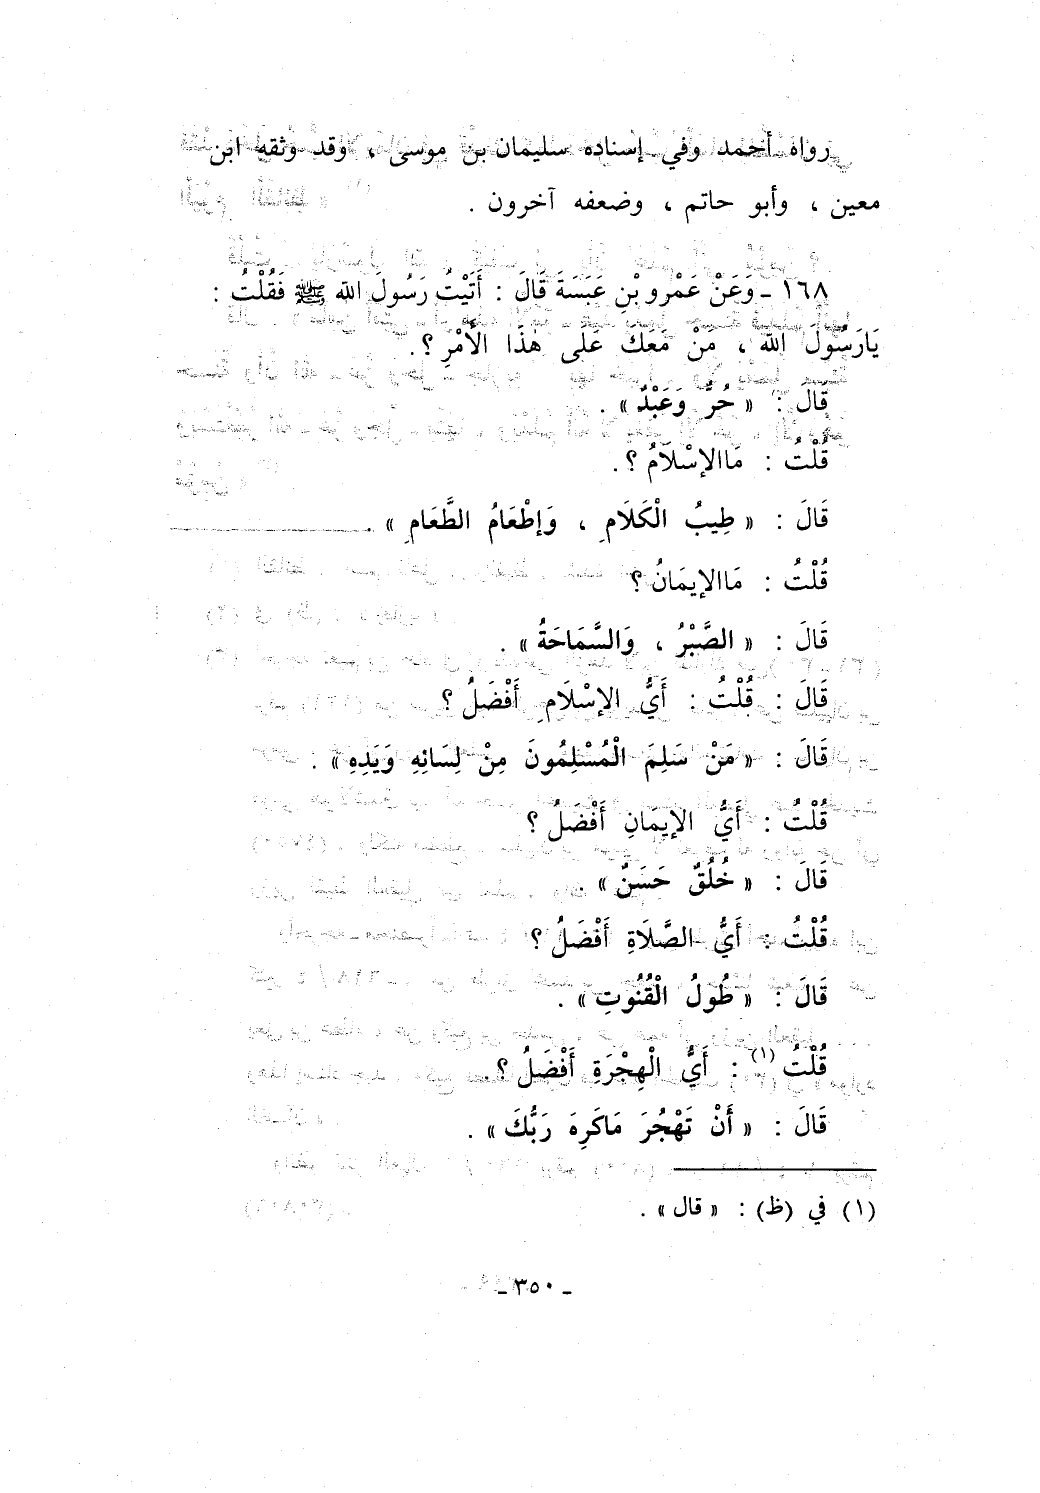 رواه أحمد وفي إسناده سليمان بن موسى ، وقد وثقه ابن
معين ، وأبو حاتم ، وضعفه آخرون .
١٦٨ ـ وَعَنْ عَمْرِو بْنِ عَبَسَةَ قَالَ : أَتَيْتُ رَسُولَ الله ﷺ فَقُلْتُ :
يَارَسُولَ الله ، مَنْ مَعَكَ عَلَى هٰذَا الأَمْرِ ؟.
قَالَ : « حُرٌّ وَعَبْدٌ » .
قُلْتُ : مَاالإسْلاَمُ ؟ .
قَالَ : « طِيبُ الْكَلاَمِ ، وَإطْعَامُ الطَّعَامِ » .
قُلْتُ : مَاالإيمَانُ ؟
قَالَ : « الصَّبْرُ ، وَالسَّمَاحَةُ » .
قَالَ : قُلْتُ : أَيُّ الإسْلَامِ أَفْضَلُ ؟
قَالَ : « مَنْ سَلِمَ الْمُسْلِمُونَ مِنْ لِسَانِهِ وَيَدِهِ » .
قُلْتُ : أَيُّ الإيمَانِ أَفْضَلُ ؟
قَالَ : « خُلُقٌ حَسَنٌ » .
قُلْتُ : أَيُّ الصَّلَاةِ أَفْضَلُ ؟
قَالَ : « طُولُ الْقُنُوتِ » .
قُلْتُ (١) : أَيُّ الْهِجْرَةِ أَفْضَلُ ؟.
قَالَ : « أَنْ تَهْجُرَ مَاكَرِهَ رَبُّكَ » .
(١) في (ظ) : « قال » .
ـ ٣٥٠ ـ